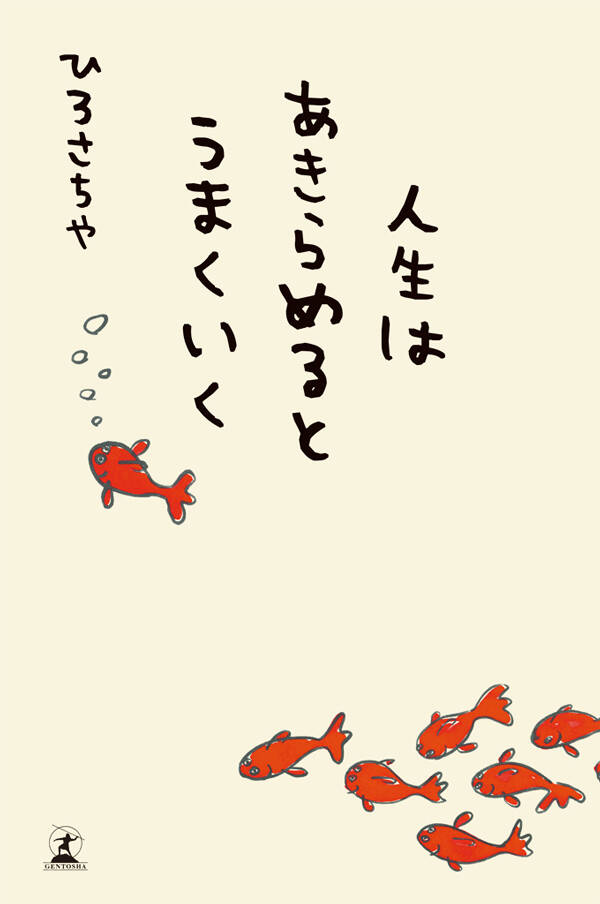 人生は
あきらめると
うまくいく
ひろさちや
GENTOSHA